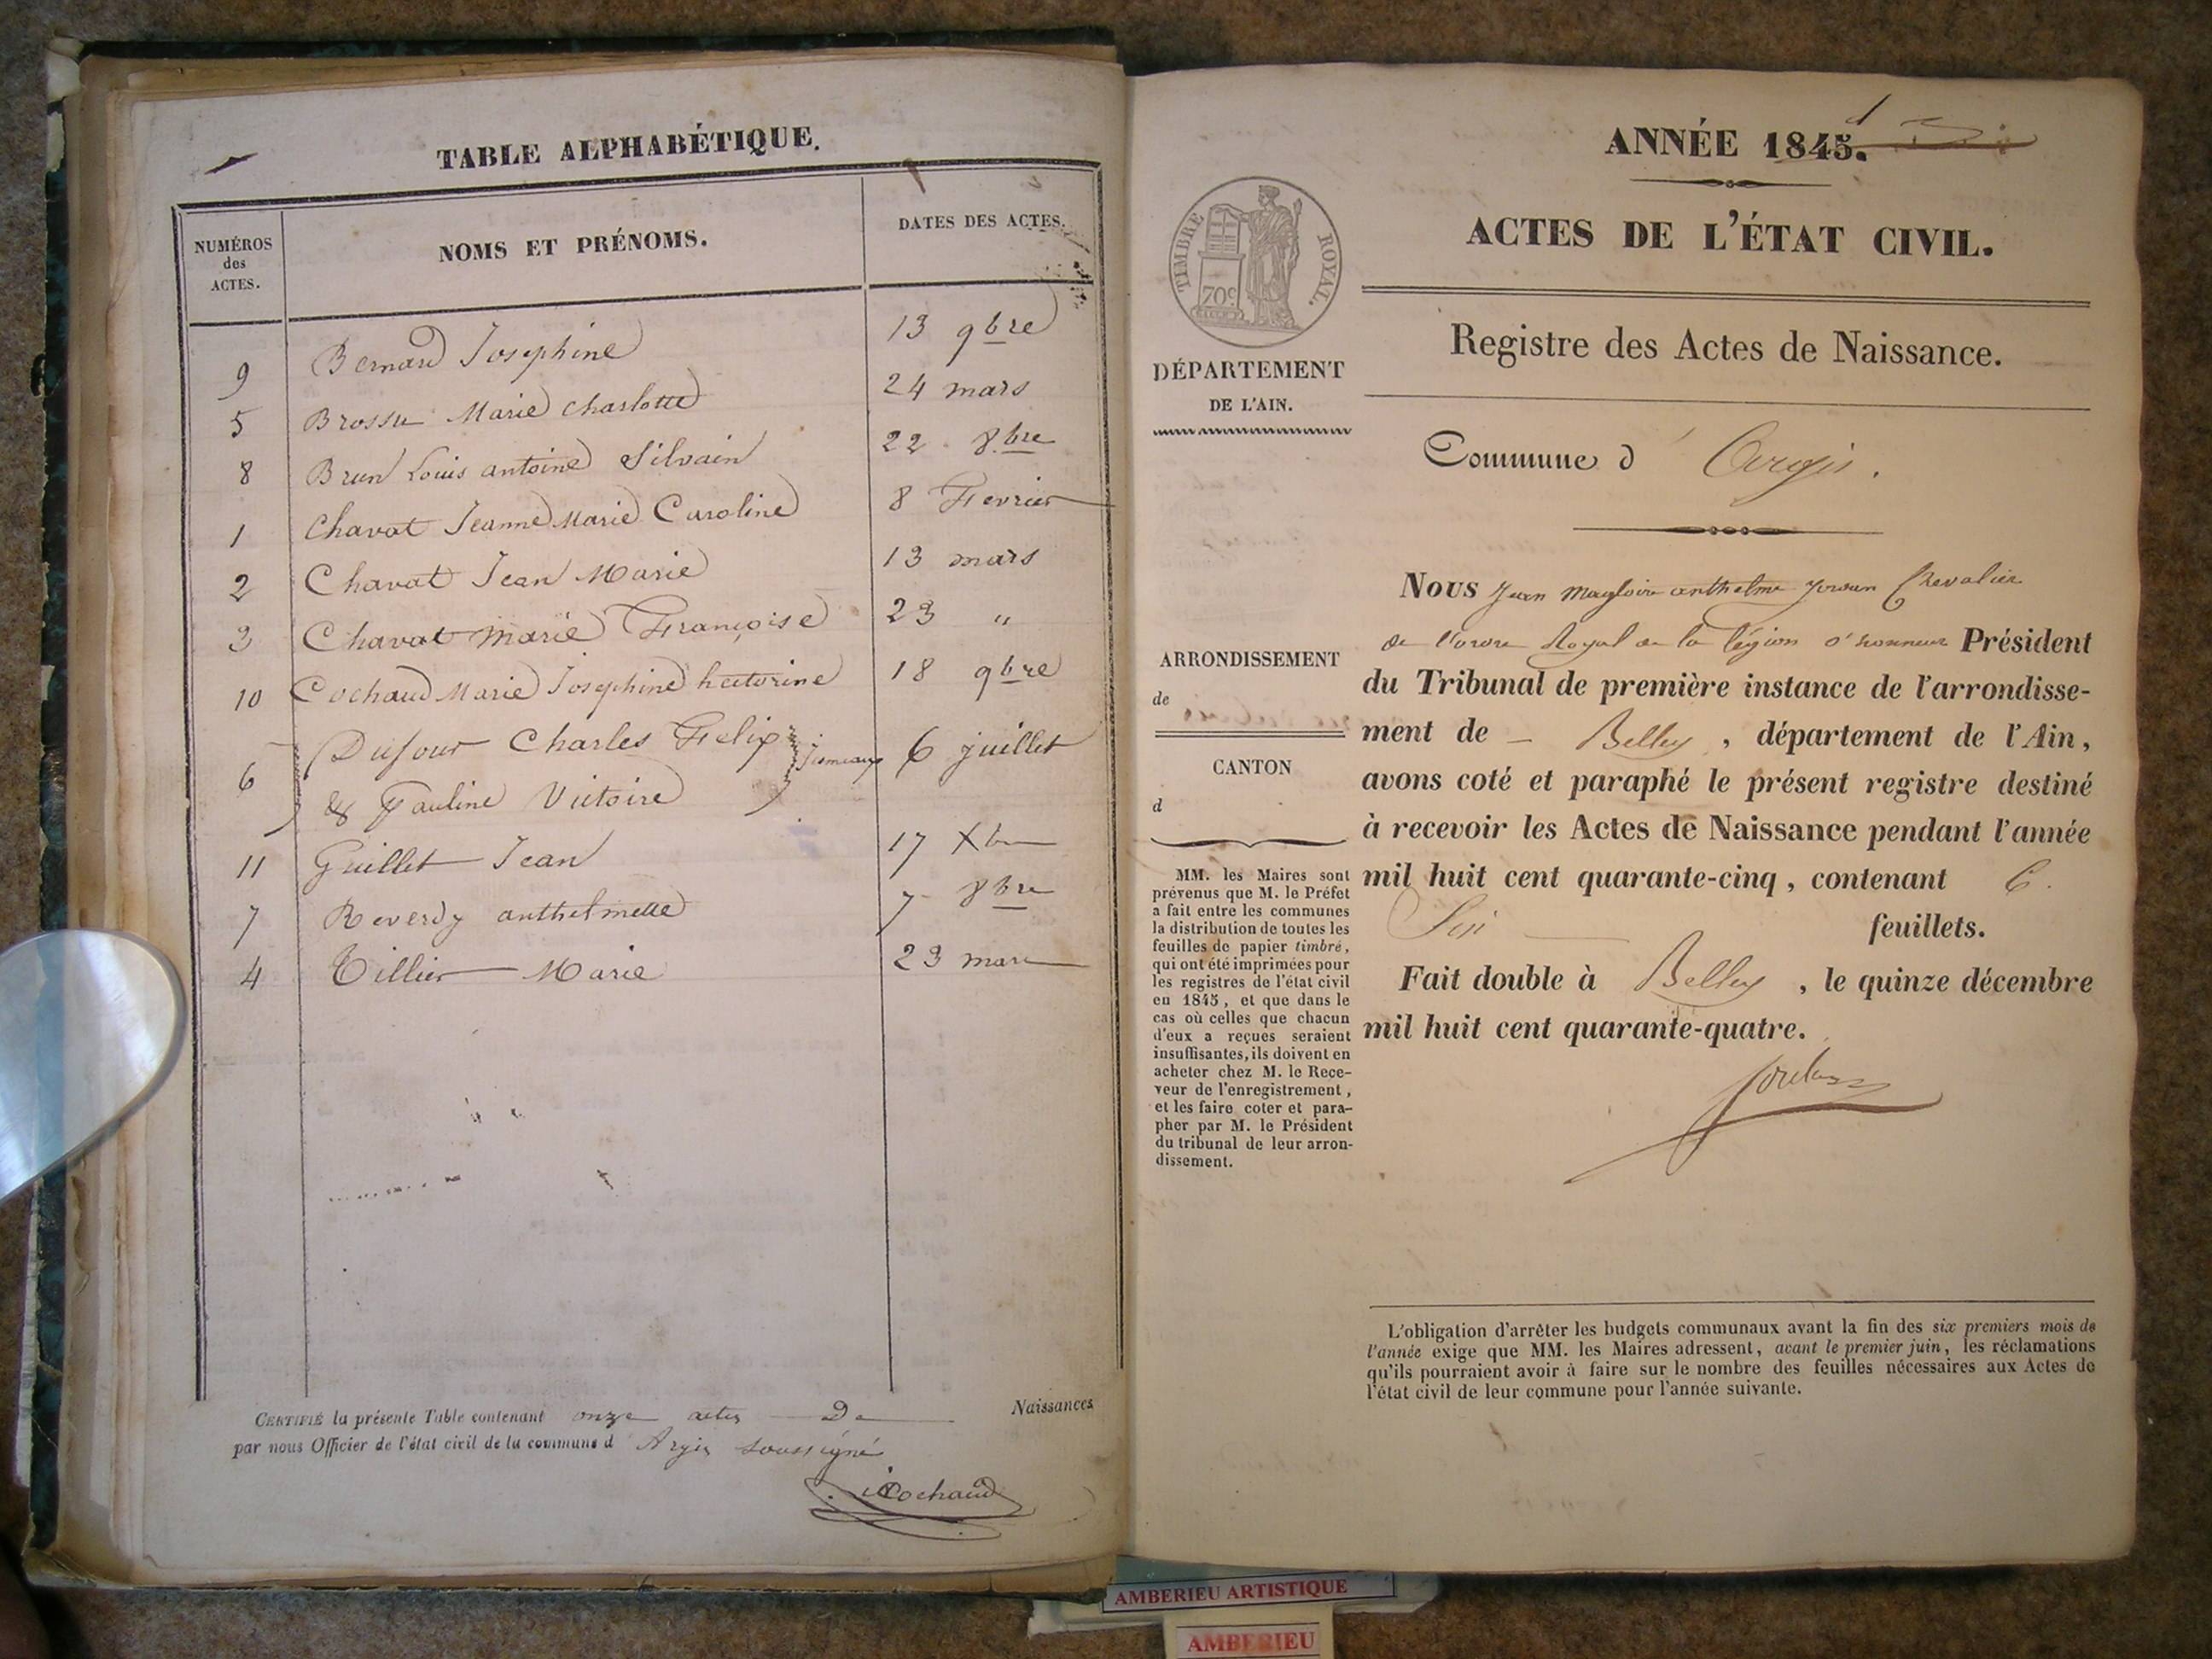 TABLE ALPHABÉTIQUE.
NUMÉROS des ACTES.
NOMS ET PRÉNOMS.
DATES DES ACTES.
9 Bernard Josephine 13 9bre
5 Marie Charlotte 24 mars
8 Brun Louis antoine Silvain 22 8.bre
1 Chavat Jeanne Marie Caroline 8 Fevrier
2 Chavat Jean Marie 13 mars
3 Chavat Marie Françoise 23 "
10 Cochaud Marie Josephine hectorine 18 9bre
6 Dufour Charles Felix jumeaux 6 juillet
& Pauline Victoire
11 Guillet Jean 17 Xbre
7 Reverdy anthelmette 7 8bre
4 Tillier Marie 23 mars
CERTIFIÉ la présente Table contenant onze actes De Naissances
par nous Officier de l'état civil de la commune d Argis soussigné
Cochaud
ANNÉE 1845.
ACTES DE L'ÉTAT CIVIL.
TIMBRE ROYAL.
70c
Registre des Actes de Naissance.
DÉPARTEMENT
DE L'AIN.
Commune d' Argis.
ARRONDISSEMENT
de
CANTON
d
MM. les Maires sont
prévenus que M. le Préfet
a fait entre les communes
la distribution de toutes les
feuilles de papier timbré,
qui ont été imprimées pour
les registres de l'état civil
en 1845, et que dans le
cas où celles que chacun
d'eux a reçues seraient
insuffisantes, ils doivent en
acheter chez M. le Rece-
veur de l'enregistrement,
et les faire coter et para-
pher par M. le Président
du tribunal de leur arron-
dissement.
NOUS Jean Magloire anthelme Chevalier
de l'ordre Royal de la légion d'honneur Président
du Tribunal de première instance de l'arrondisse-
ment de Belley, département de l'Ain,
avons coté et paraphé le présent registre destiné
à recevoir les Actes de Naissance pendant l'année
mil huit cent quarante-cinq, contenant 6.
Six feuillets.
Fait double à Belley, le quinze décembre
mil huit cent quarante-quatre.
L'obligation d'arrêter les budgets communaux avant la fin des six premiers mois de
l'année exige que MM. les Maires adressent, avant le premier juin, les réclamations
qu'ils pourraient avoir à faire sur le nombre des feuilles nécessaires aux Actes de
l'état civil de leur commune pour l'année suivante.
AMBERIEU ARTISTIQUE
AMBERIEU